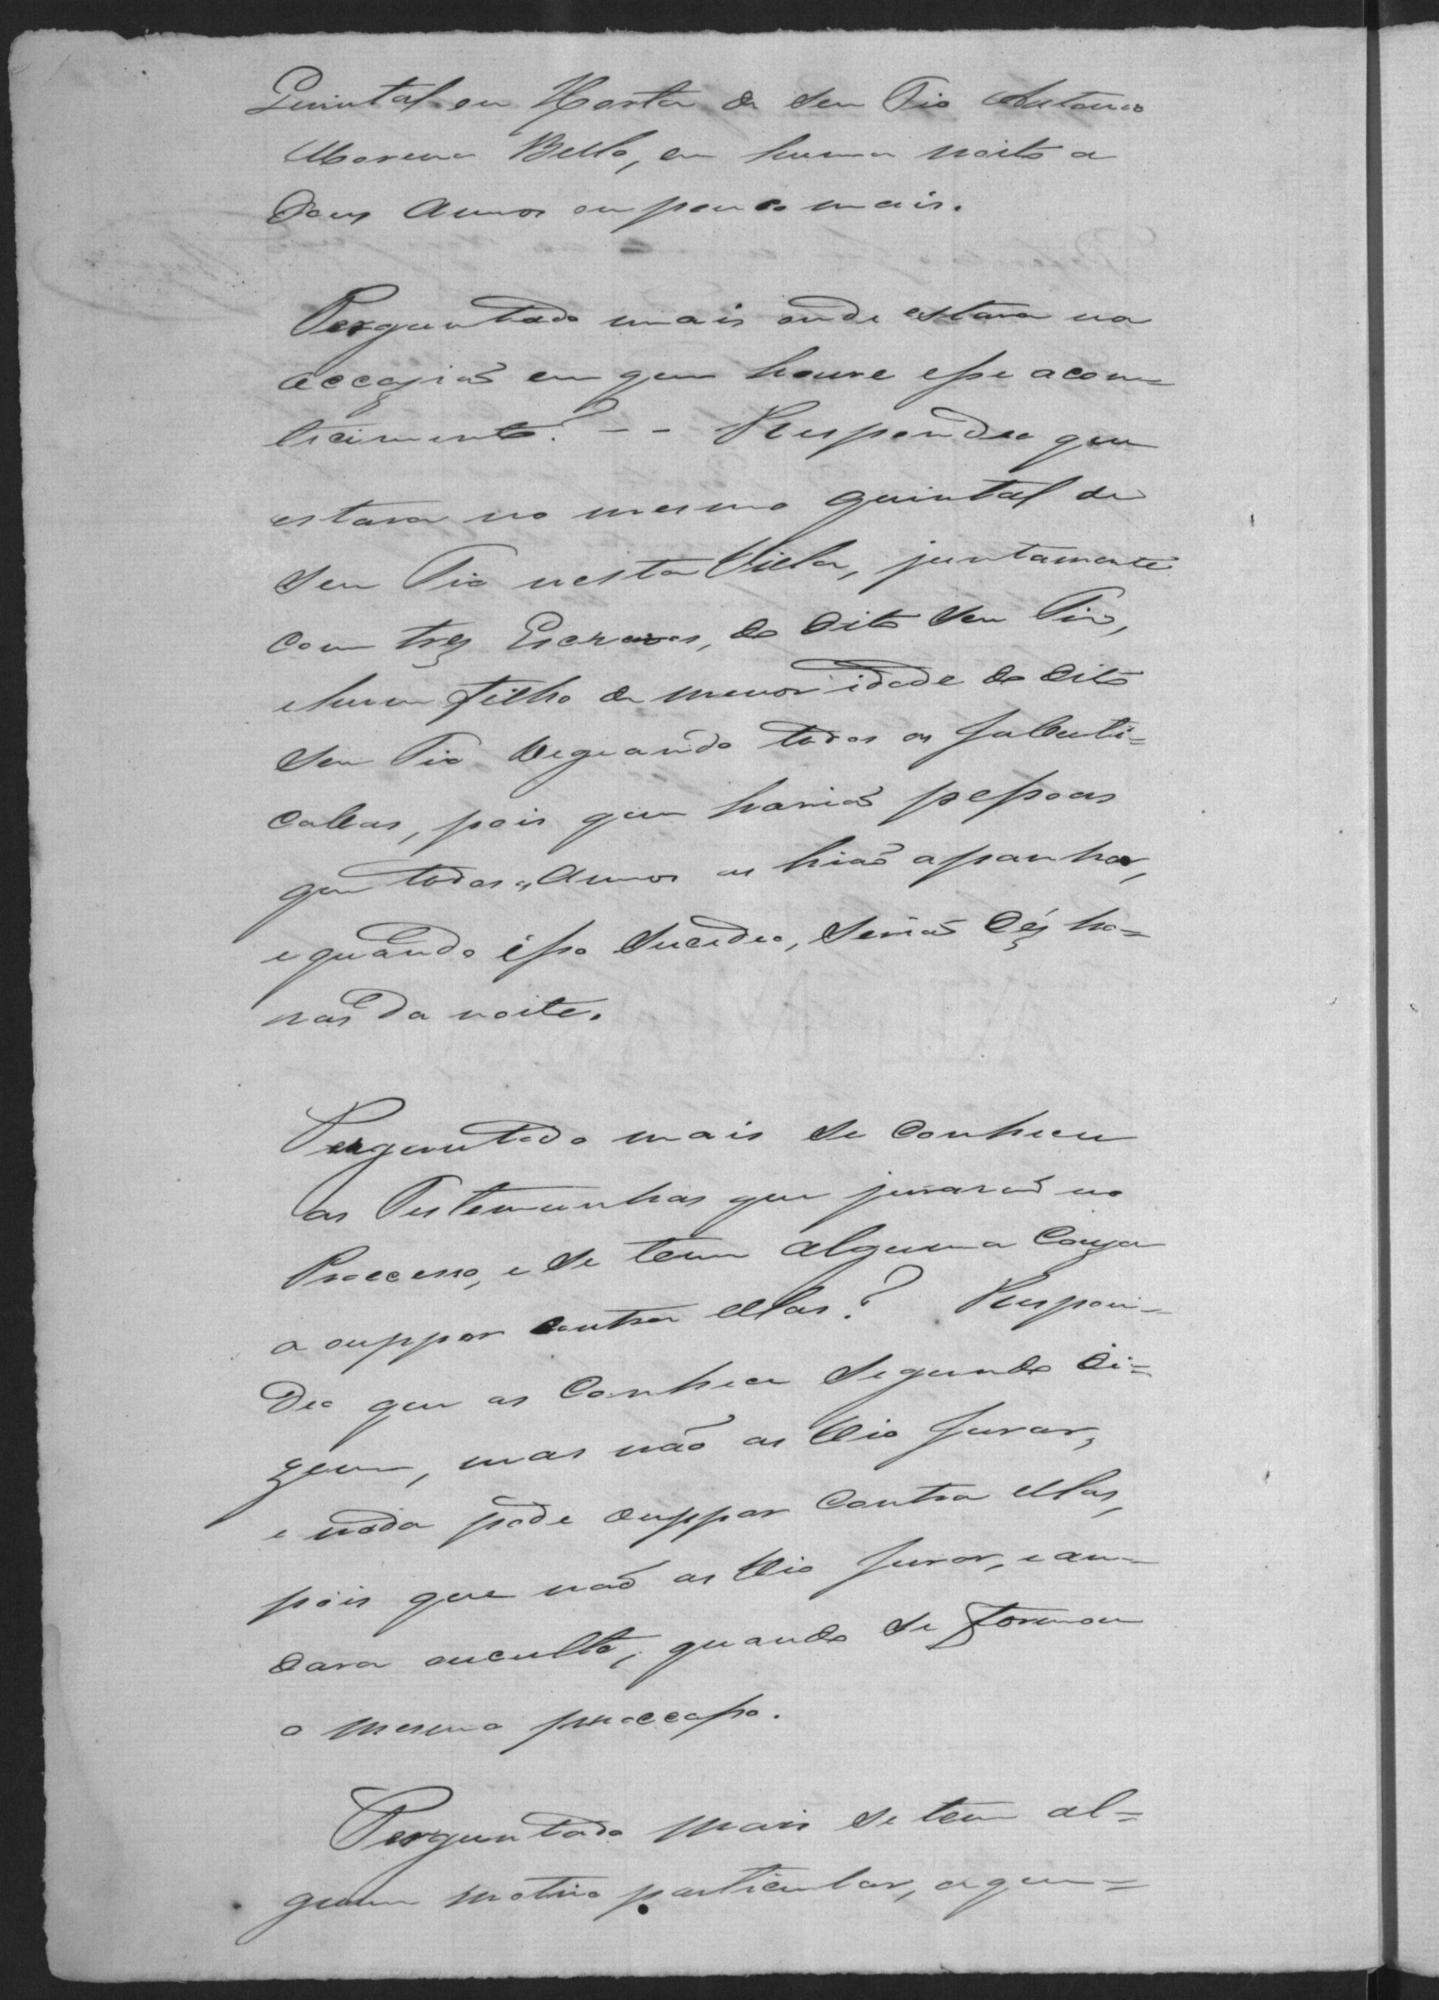 Quintal ou Horta de seu Tio Antonio
Moreira Bello, em huma noite a
dous annos ou pouco mais.
Perguntado mais onde estava na
occazião em que houve esse acon=
tecimento? - - Respondeo que
estava no mesmo quintal de
seu Tio nesta Villa, juntamente
com tres Escravos, do dito seu Tio,
e hum filho de menor idade do dito
seu Tio vegiando todos os Jabuti=
cabas, pois que havião pessoas
que todos os Annos as hião apanhar,
e quando isso sucedeo, serião déz ho=
ras da noite.
Perguntado mais se conhece
as Testemunhas que jurarão no
Processo, e se tem alguma Couza
a ouppor contra ellas? Respon=
deo que as Conhece segundo di=
zem, mas não as vio Jurar,
e nada pode ouppor Contra ellas,
pois que não as vio Jurar, e an=
dava occulto, quando se formou
o mesmo proccesso.
Perguntado mais se tem al=
gum motivo particular, a que=